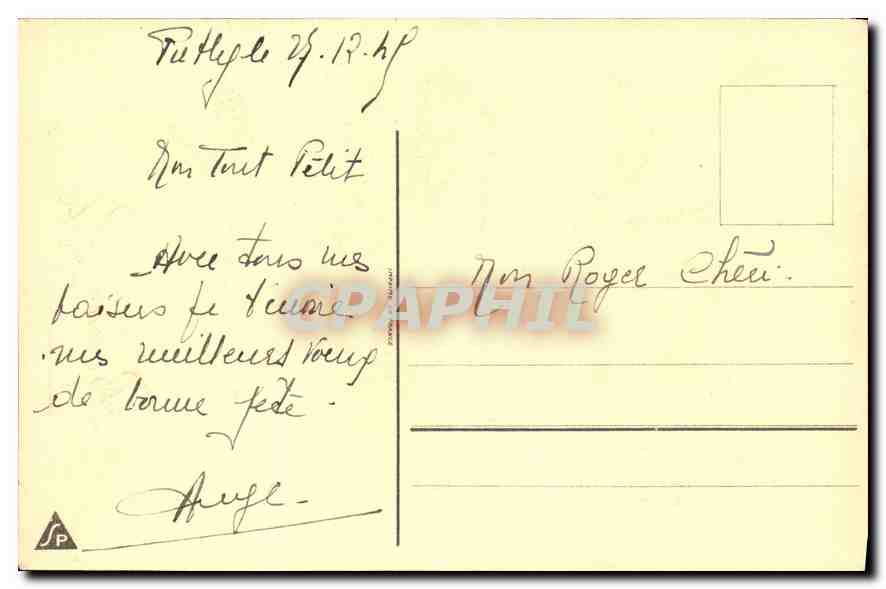 le 27.12.45
Mon Tout Petit
Avec tous mes
baisers je t'envoie
mes meilleurs voeux
de bonne fête.
Ange
Mon Roger Chéri.
CPAPHIL
SP